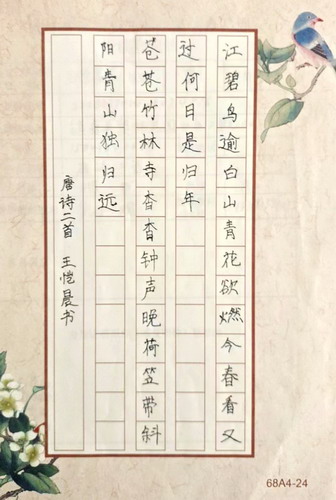 江碧鸟逾白山青花欲燃今春看又
过何日是归年
苍苍竹林寺杳杳钟声晚荷笠带斜
阳青山独归远
唐诗二首 王恺晨书
68A4-24